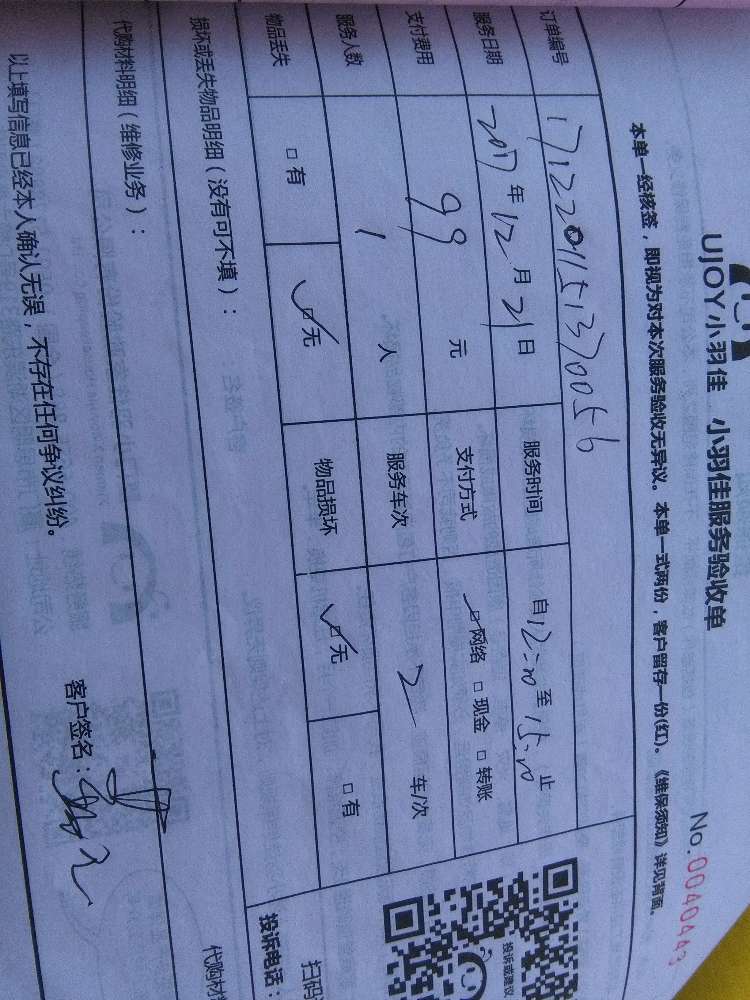 UJOY小羽佳 小羽佳服务验收单
No.0040443
本单一经核签，即视为对本次服务验收无异议。本单一式两份，客户留存一份(红)。《维保须知》详见背面。
订单编号 1712201151370056
服务日期 2017年12月21日 服务时间 自12:00至15:00止
支付费用 99元 支付方式 ☑网络 □现金 □转账
服务人数 1人 服务车次 2车/次
物品丢失 □有 ☑无 物品损坏 ☑无 □有
投诉或建议
损坏或丢失物品明细（没有可不填）：
扫码
投诉电话：
代购材料明细（维修业务）：
代购材
以上填写信息已经本人确认无误，不存在任何争议纠纷。
客户签名：